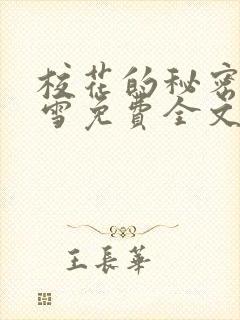 校花的秘密
雪免费全文
王長華